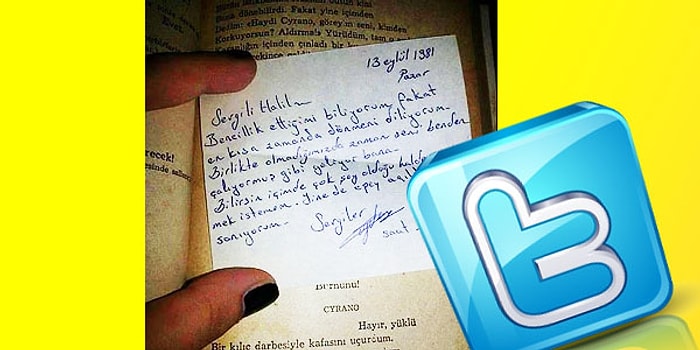 dönebilirdi. Fakat yine içimden
Dedim: «Haydi Cyrano, görey'm seni, kimden
Korkuyorsun? Aldırma!» Yürüdüm, tam
içinden çınladı bir
Evet.
13 eylül 1981
Pazar
Sevgili Halil
Bencillik ettiğimi biliyorum, fakat
en kısa zamanda dönmeni diliyorum.
Birlikte olmadığımızda zaman seni benden
çalıyormuş gibi geliyor bana.
Bilirsin içimde çok şey olduğu halde
mek istemem. Yine de epey
sanıyorum.
Sevgiler
saat
recek!
esinde
Burnunu!
CYRANO
Hayır, yüklü
Bir kılıç darbesiyle kafasını uçurdum.